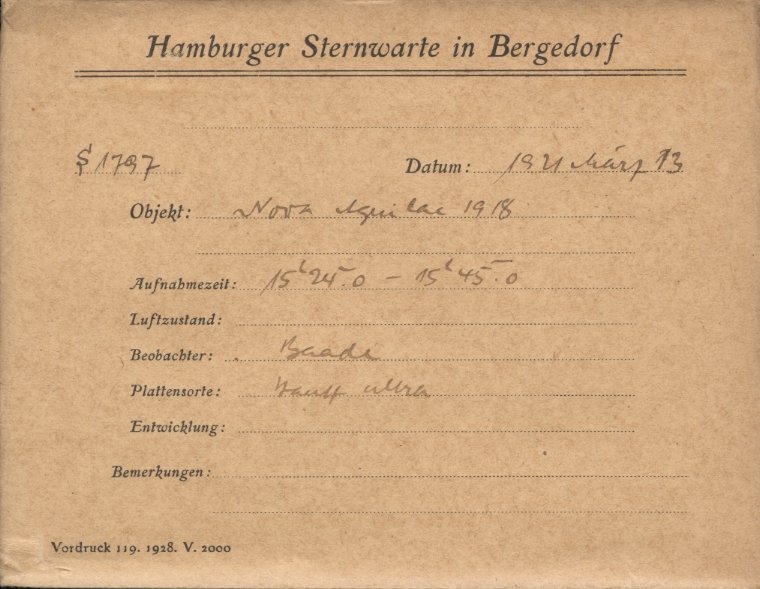 Hamburger Sternwarte in Bergedorf
S 1797 Datum: 1921 März 13
Objekt: Nova Aquilae 1918
Aufnahmezeit: 15h24m.0 – 15h45m.0
Luftzustand:
Beobachter: Baade
Plattensorte: Hauff ultra
Entwicklung:
Bemerkungen:
Vordruck 119. 1928. V. 2000